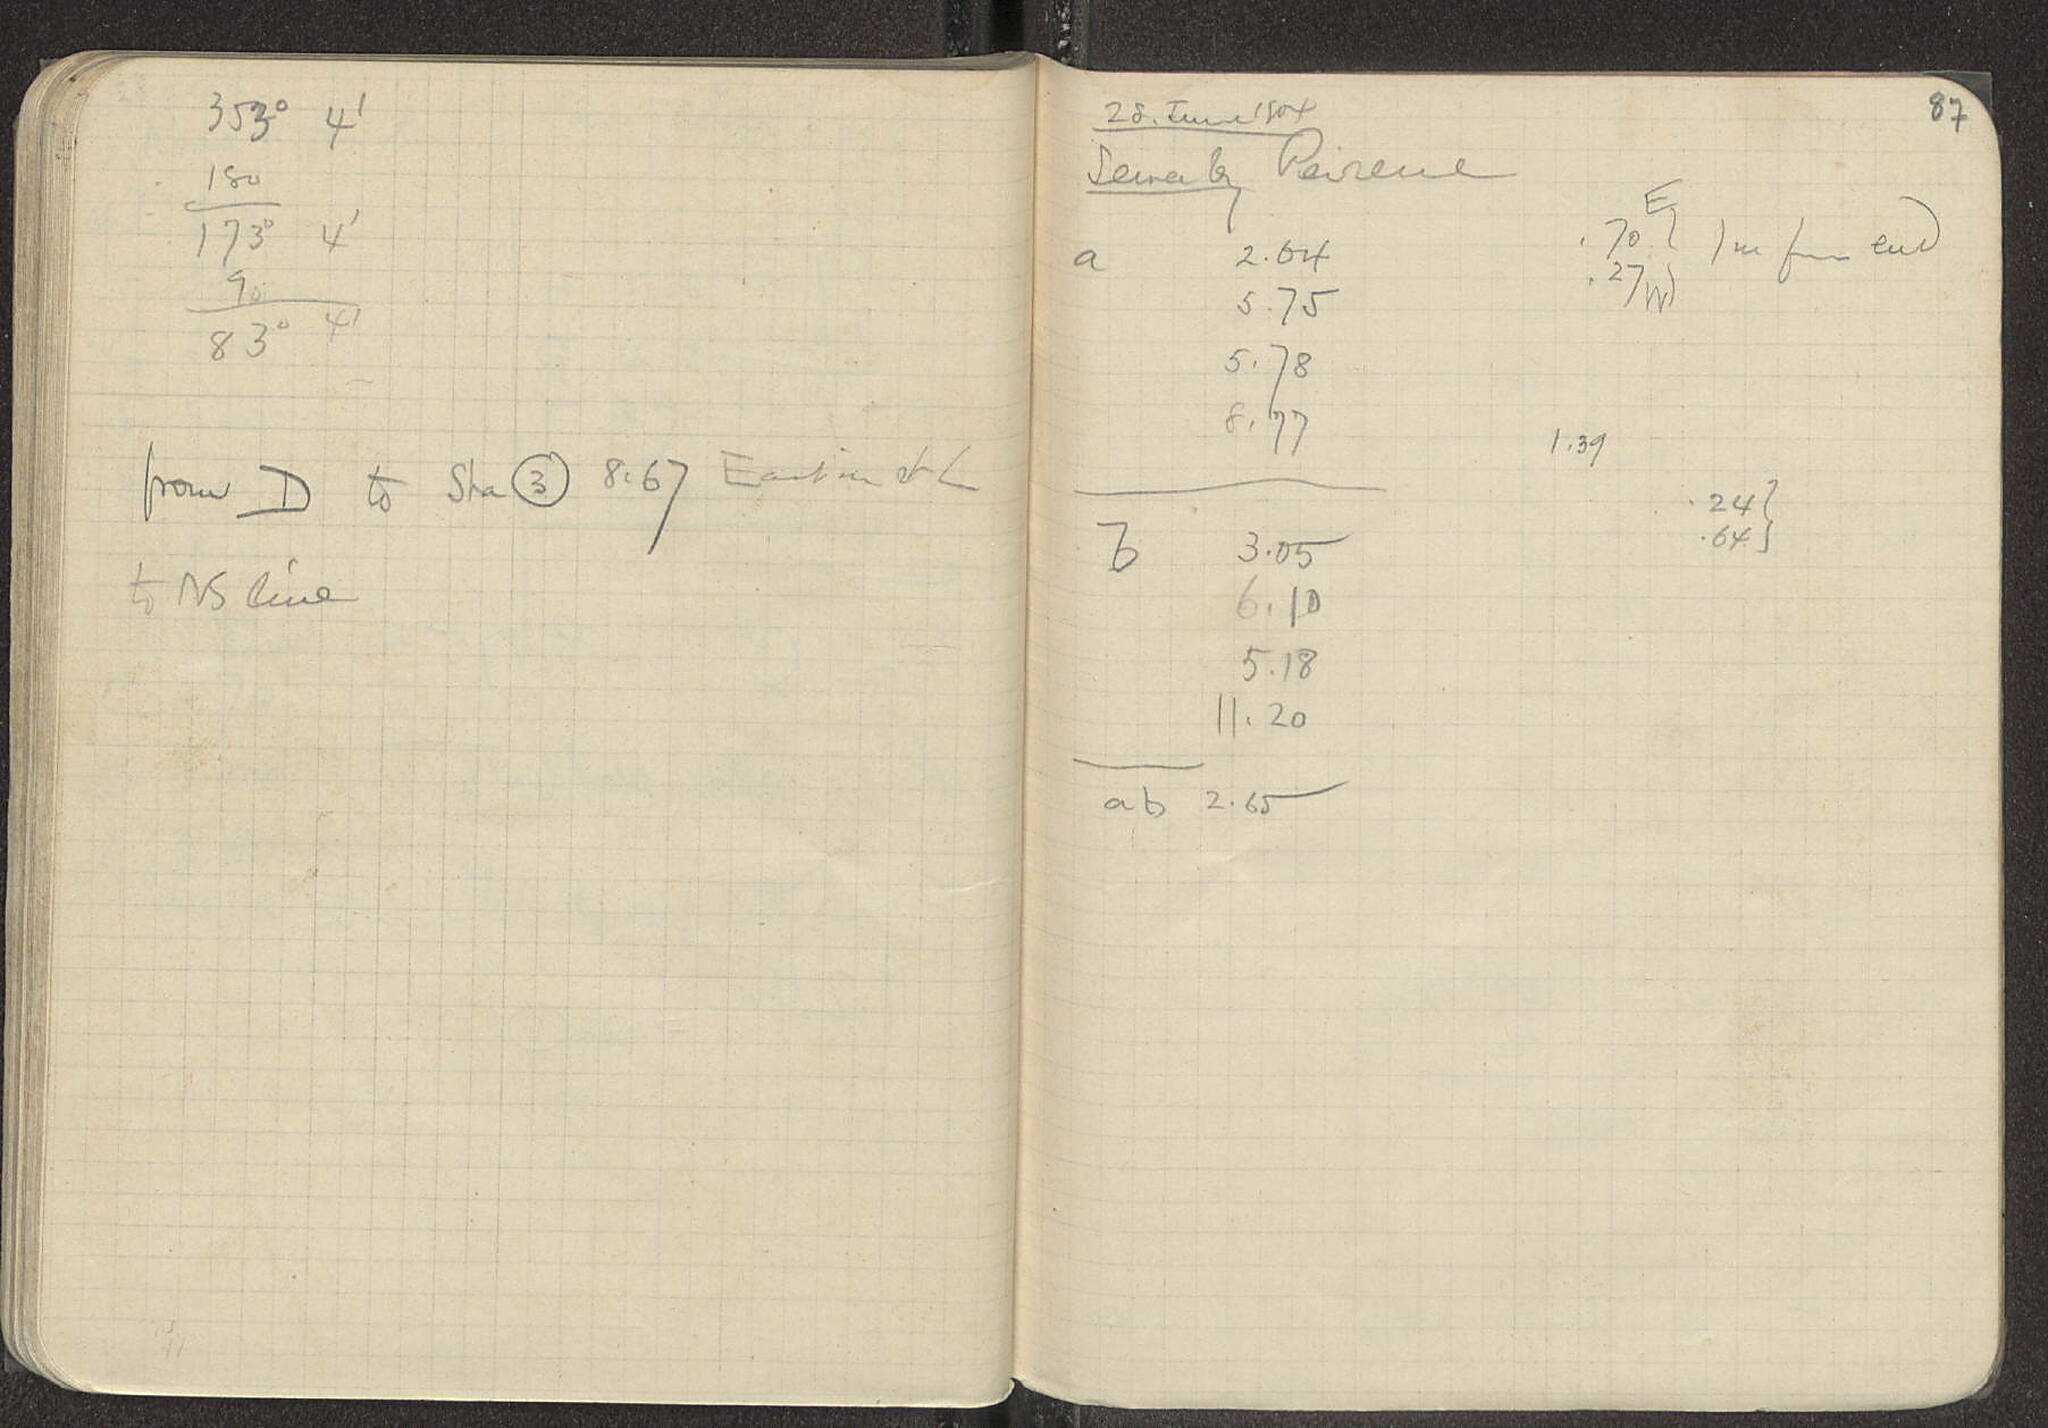 353° 4'
180
173° 4'
90
83° 4'
from D to Sta ③ 8.67 East
to NS line
87
28. June '04
Sewer by Peirene
a 2.04
5.75
5.78
8.77
E
.70 } 1m from end
.27 W
1.39
.24 }
.64 }
b 3.05
6.10
5.18
11.20
ab 2.65